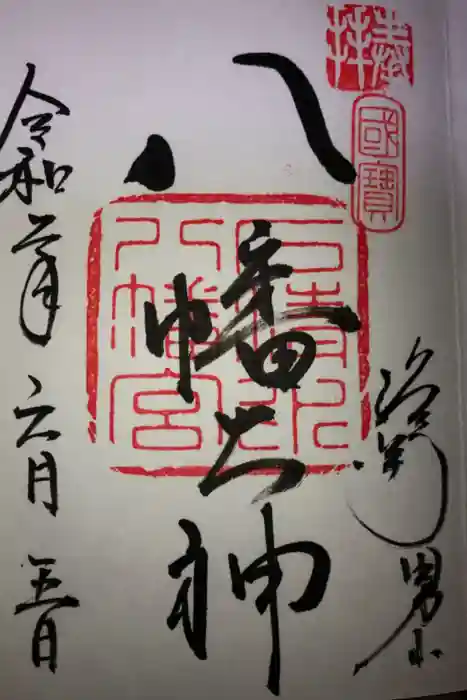 奉拝
國寶
洛南男山
八幡大神
石清水
八幡宮
令和二年六月五日